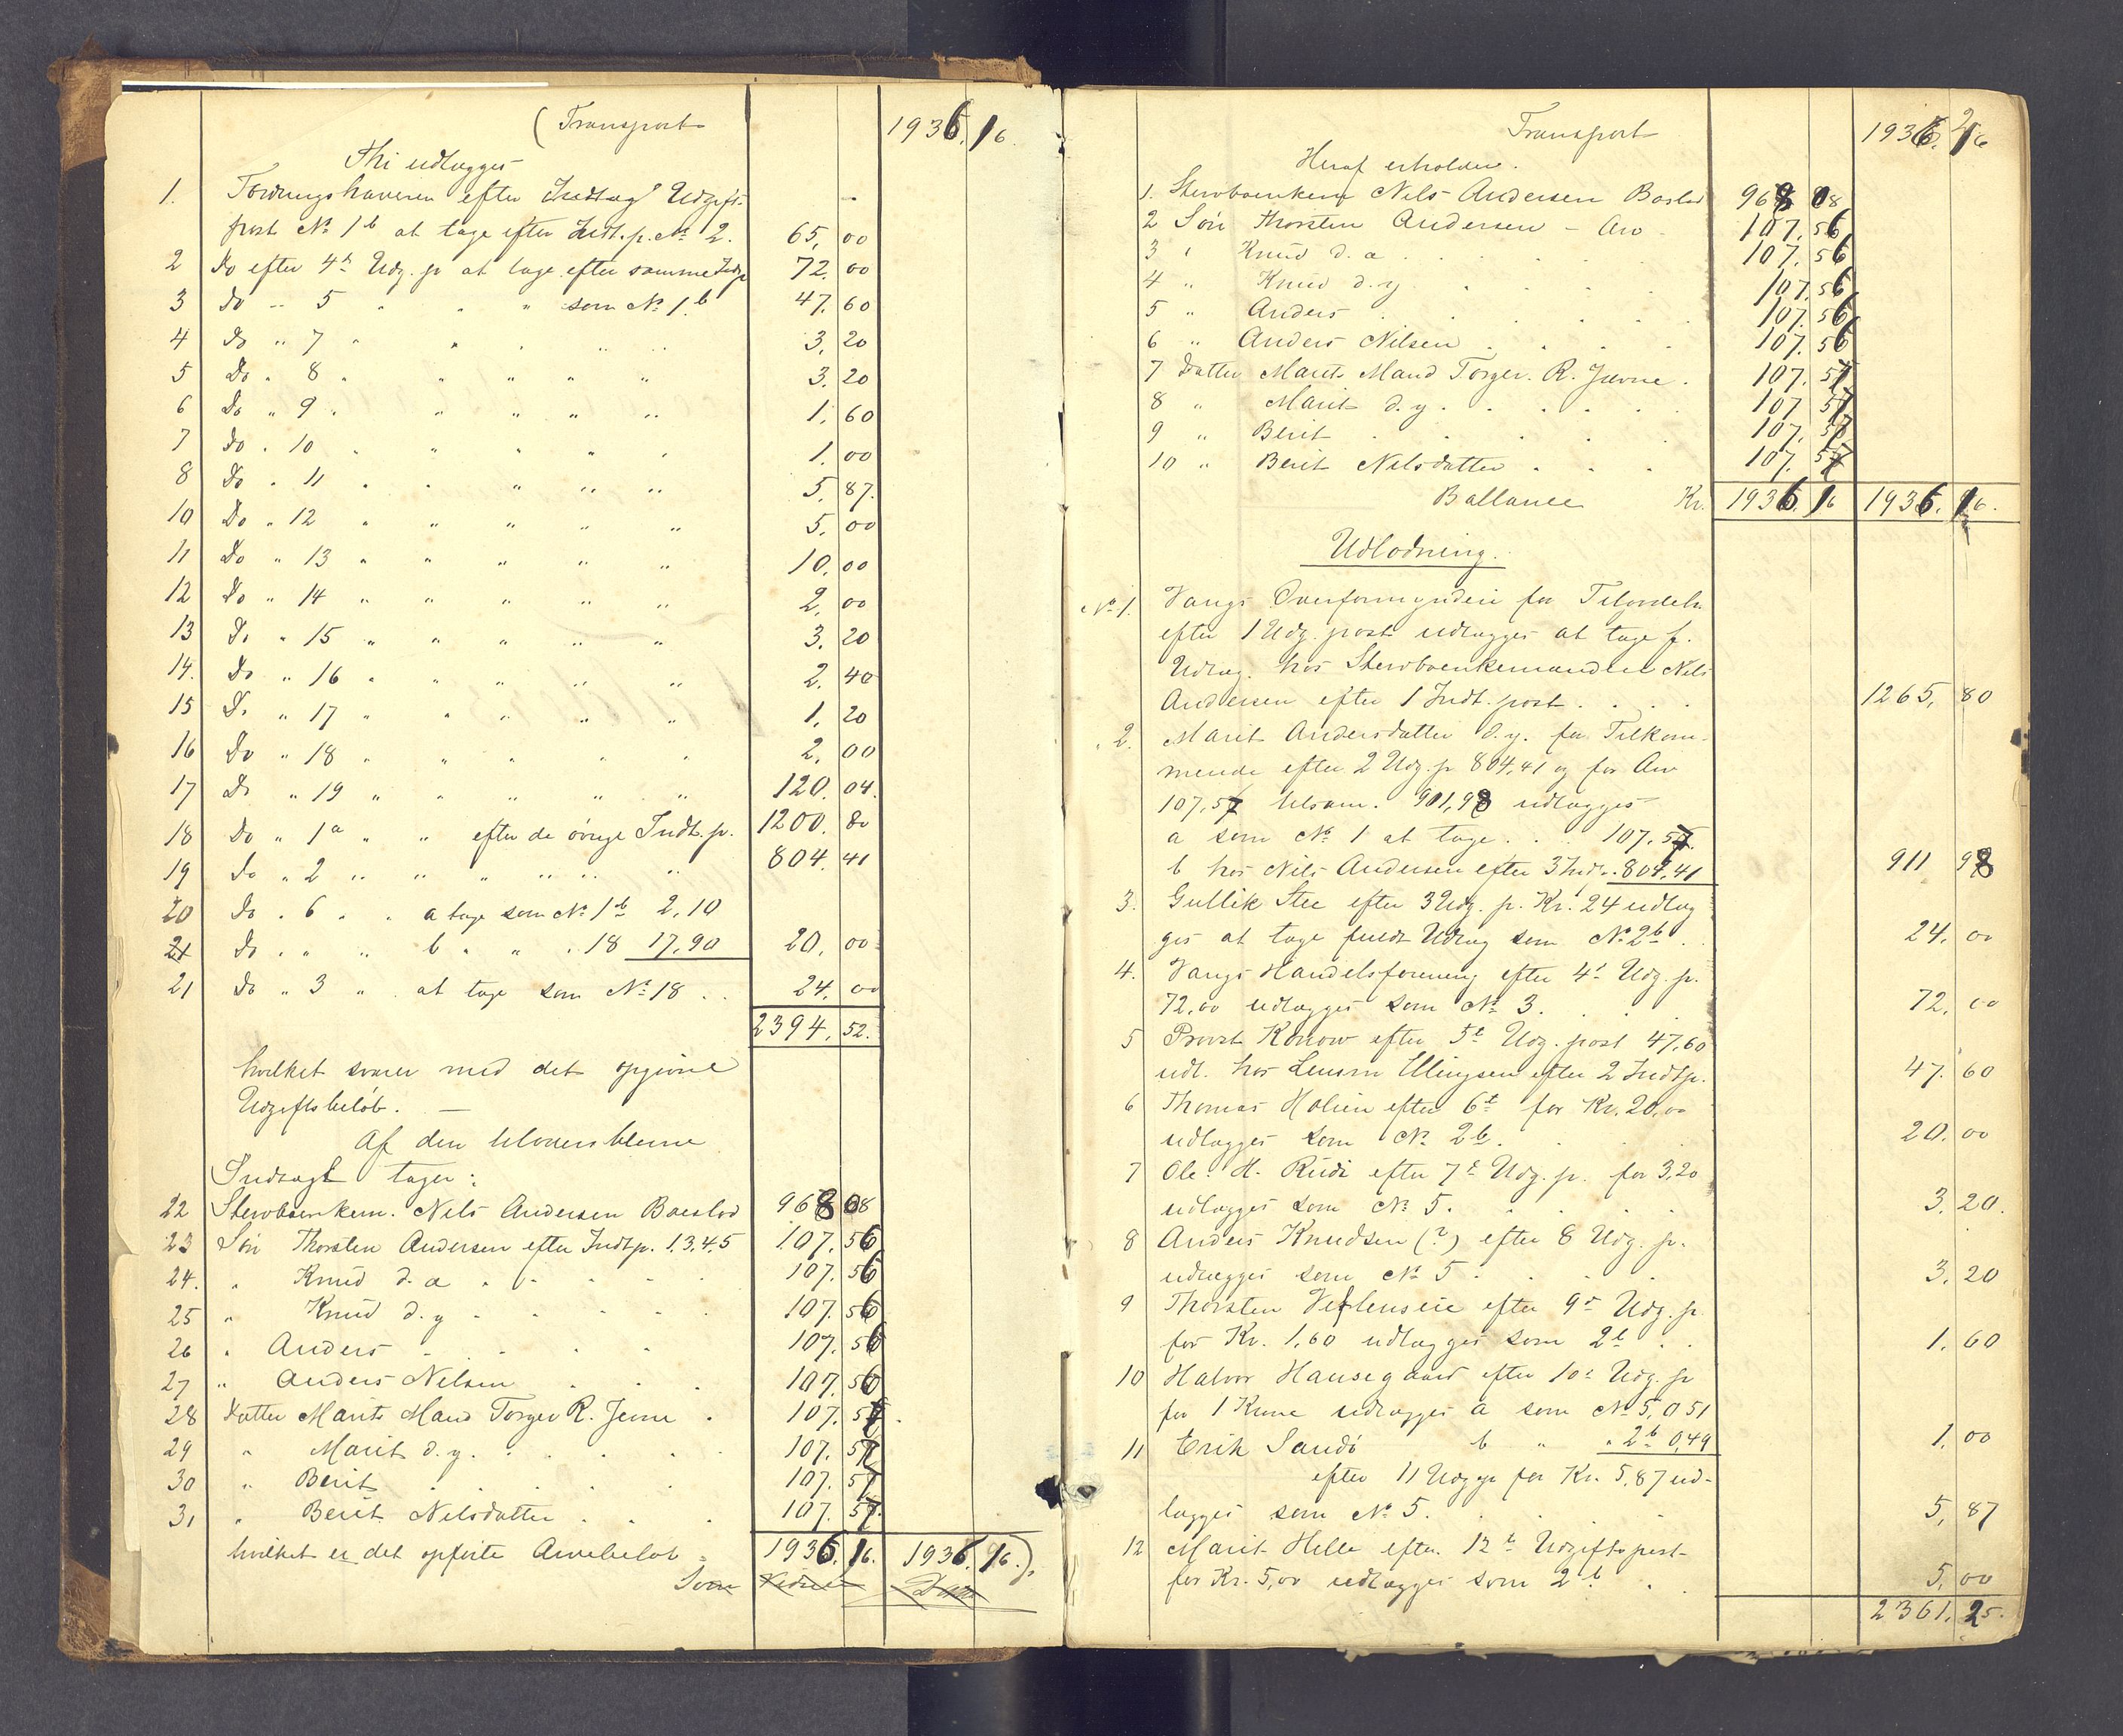 (Transport 1936. 16.
Thi udlægges
1. Fordringshaveren efter Indtag Udgifts-
post No 1 b at tage efter Indt. p. No 2. 65, 00
2 Do efter 4de Udg. p at tage efter samme Indtp 72. 00
3 Do " 5 " " " som No 1 b 47. 60
4 Do " 7 " " " " " 3. 20
5 Do " 8 " " " " " 3. 20
6 Do " 9 " " " " " 1. 60
7 Do " 10 " " " " " 1. 00
8 Do " 11 " " " " " 5. 87.
10 Do " 12 " " " " " 5. 00
11 Do " 13 " " " " " 10. 00
12 Do " 14 " " " " " 2. 00
13 Do " 15 " " " " " 3. 20
14. Do " 16 " " " " " 2. 40
15 Do " 17 " " " " " 1. 20
16 Do " 18 " " " " " 2. 00
17 Do " 19 " " " " " 120. 04.
18 Do " 1a " " efter de øvrige Indt. p. 1200. 80
19 Do " 2 " " " " " " 804. 41
20 Do " 6 " " a tage som No 1 b 2,10
21 Do " " " b " " " 18 17,90 20. 00
21 Do " 3 " at tage som No 18 . . 24. 00
2394. 52.
hvilket svarer med det opgivne
Udgiftsbeløb. —
Af den tiloversblevne
Indtægt tager:
22 Stervboenkem. Nils Andersen Baeslod 968 08
23 Søn Thorsten Andersen efter Indtp. 1.3.4.5 107. 56
24. " Knud d. æ . . . . 107. 56
25 " Knud d. y . . . . 107. 56
26 " Anders . . . . 107. 56
27 " Anders Nilsen . . . 107. 56
28 Datter Marits Mand Torger R. Jevne . 107. 57.
29 " Marit d. y. . . . . 107. 57
30 " Berit . . . . 107. 57
31 " Berit Nilsdatter . . . 107. 57.
hvilket er det opførte Arvebeløb = 1936. 16. 1936. 16.).
Transport 1936. 16
Heraf erholder.
1. Stervboenkem Nils Andersen Baslod 968 08
2 Søn Thorsten Andersen - Arv - 107. 56
3 " Knud d. æ . . . . 107. 56
4 " Knud d. y . . . . 107. 56
5 " Anders . . . . 107. 56
6 " Anders Nilsen . . . . 107. 56
7 Datter Marits Mand Torger. R. Jevne . 107. 57
8 " Marit d. y . . . . 107 57
9 " Berit . . . . 107. 57
10 " Berit Nilsdatter . . . 107. 57
Ballance Kr. 1936. 16 1936. 16.
Udlodning.
No 1. Vangs Overformynderi for Tilgodeh.
efter 1 Udg. post udlægges at tage f.
Udlæg. hos Stervboenkemanden Nils
Andersen efter 1 Indt. post . . . . 1265, 80
" 2. Marit Andersdatter d. y. for Tilkom-
mende efter 2 Udg. p 804,41 og for Arv
107,57 tilsam. 911,98 udlægges
a som No 1 at tage . . . 107.57.
b hos Nils Andersen efter 3 Indt. 804,41 911 98
3. Gullik Stee efter 3 Udg. p. Kr. 24 udlæg
ges at tage fuldt Udlæg som No 2 b . . 24. 00
4. Vangs Handelsforening efter 4de Udg. p.
72.00 udlægges som No 3. . . . 72. 00
5 Provst Konow efter 5te Udg. post 47,60
udl. hos Lensm Ellingsen efter 2 Indtp. 47. 60
6 Thomas Holien efter 6te for Kr. 20,00
udlægges som No 2 b. . . . 20. 00
7 Ole H. Rudi efter 7de Udg. p. for 3,20
udlægges som No 5. . . . 3. 20.
8 Anders Knudsen (?) efter 8 Udg. p.
udlægges som No 5 . . . . 3. 20
9 Thorsten Veflenseie efter 9de Udg. p
for Kr. 1,60 udlægges som 2 b . . 1. 60
10 Halvor Hansegaard efter 10de Udg. p
for 1 Krone udlægges a som No 5, 0 51
11 Erik Sandø b " " 2 b 0,49 1. 00
efter 11 Udg p for Kr. 5,87 ud-
lægges som No 5. . . . 5, 87
12 Marit Helle efter 12te Udgiftspost
for Kr. 5,00 udlægges som 2 b . . 5, 00
2361. 25.